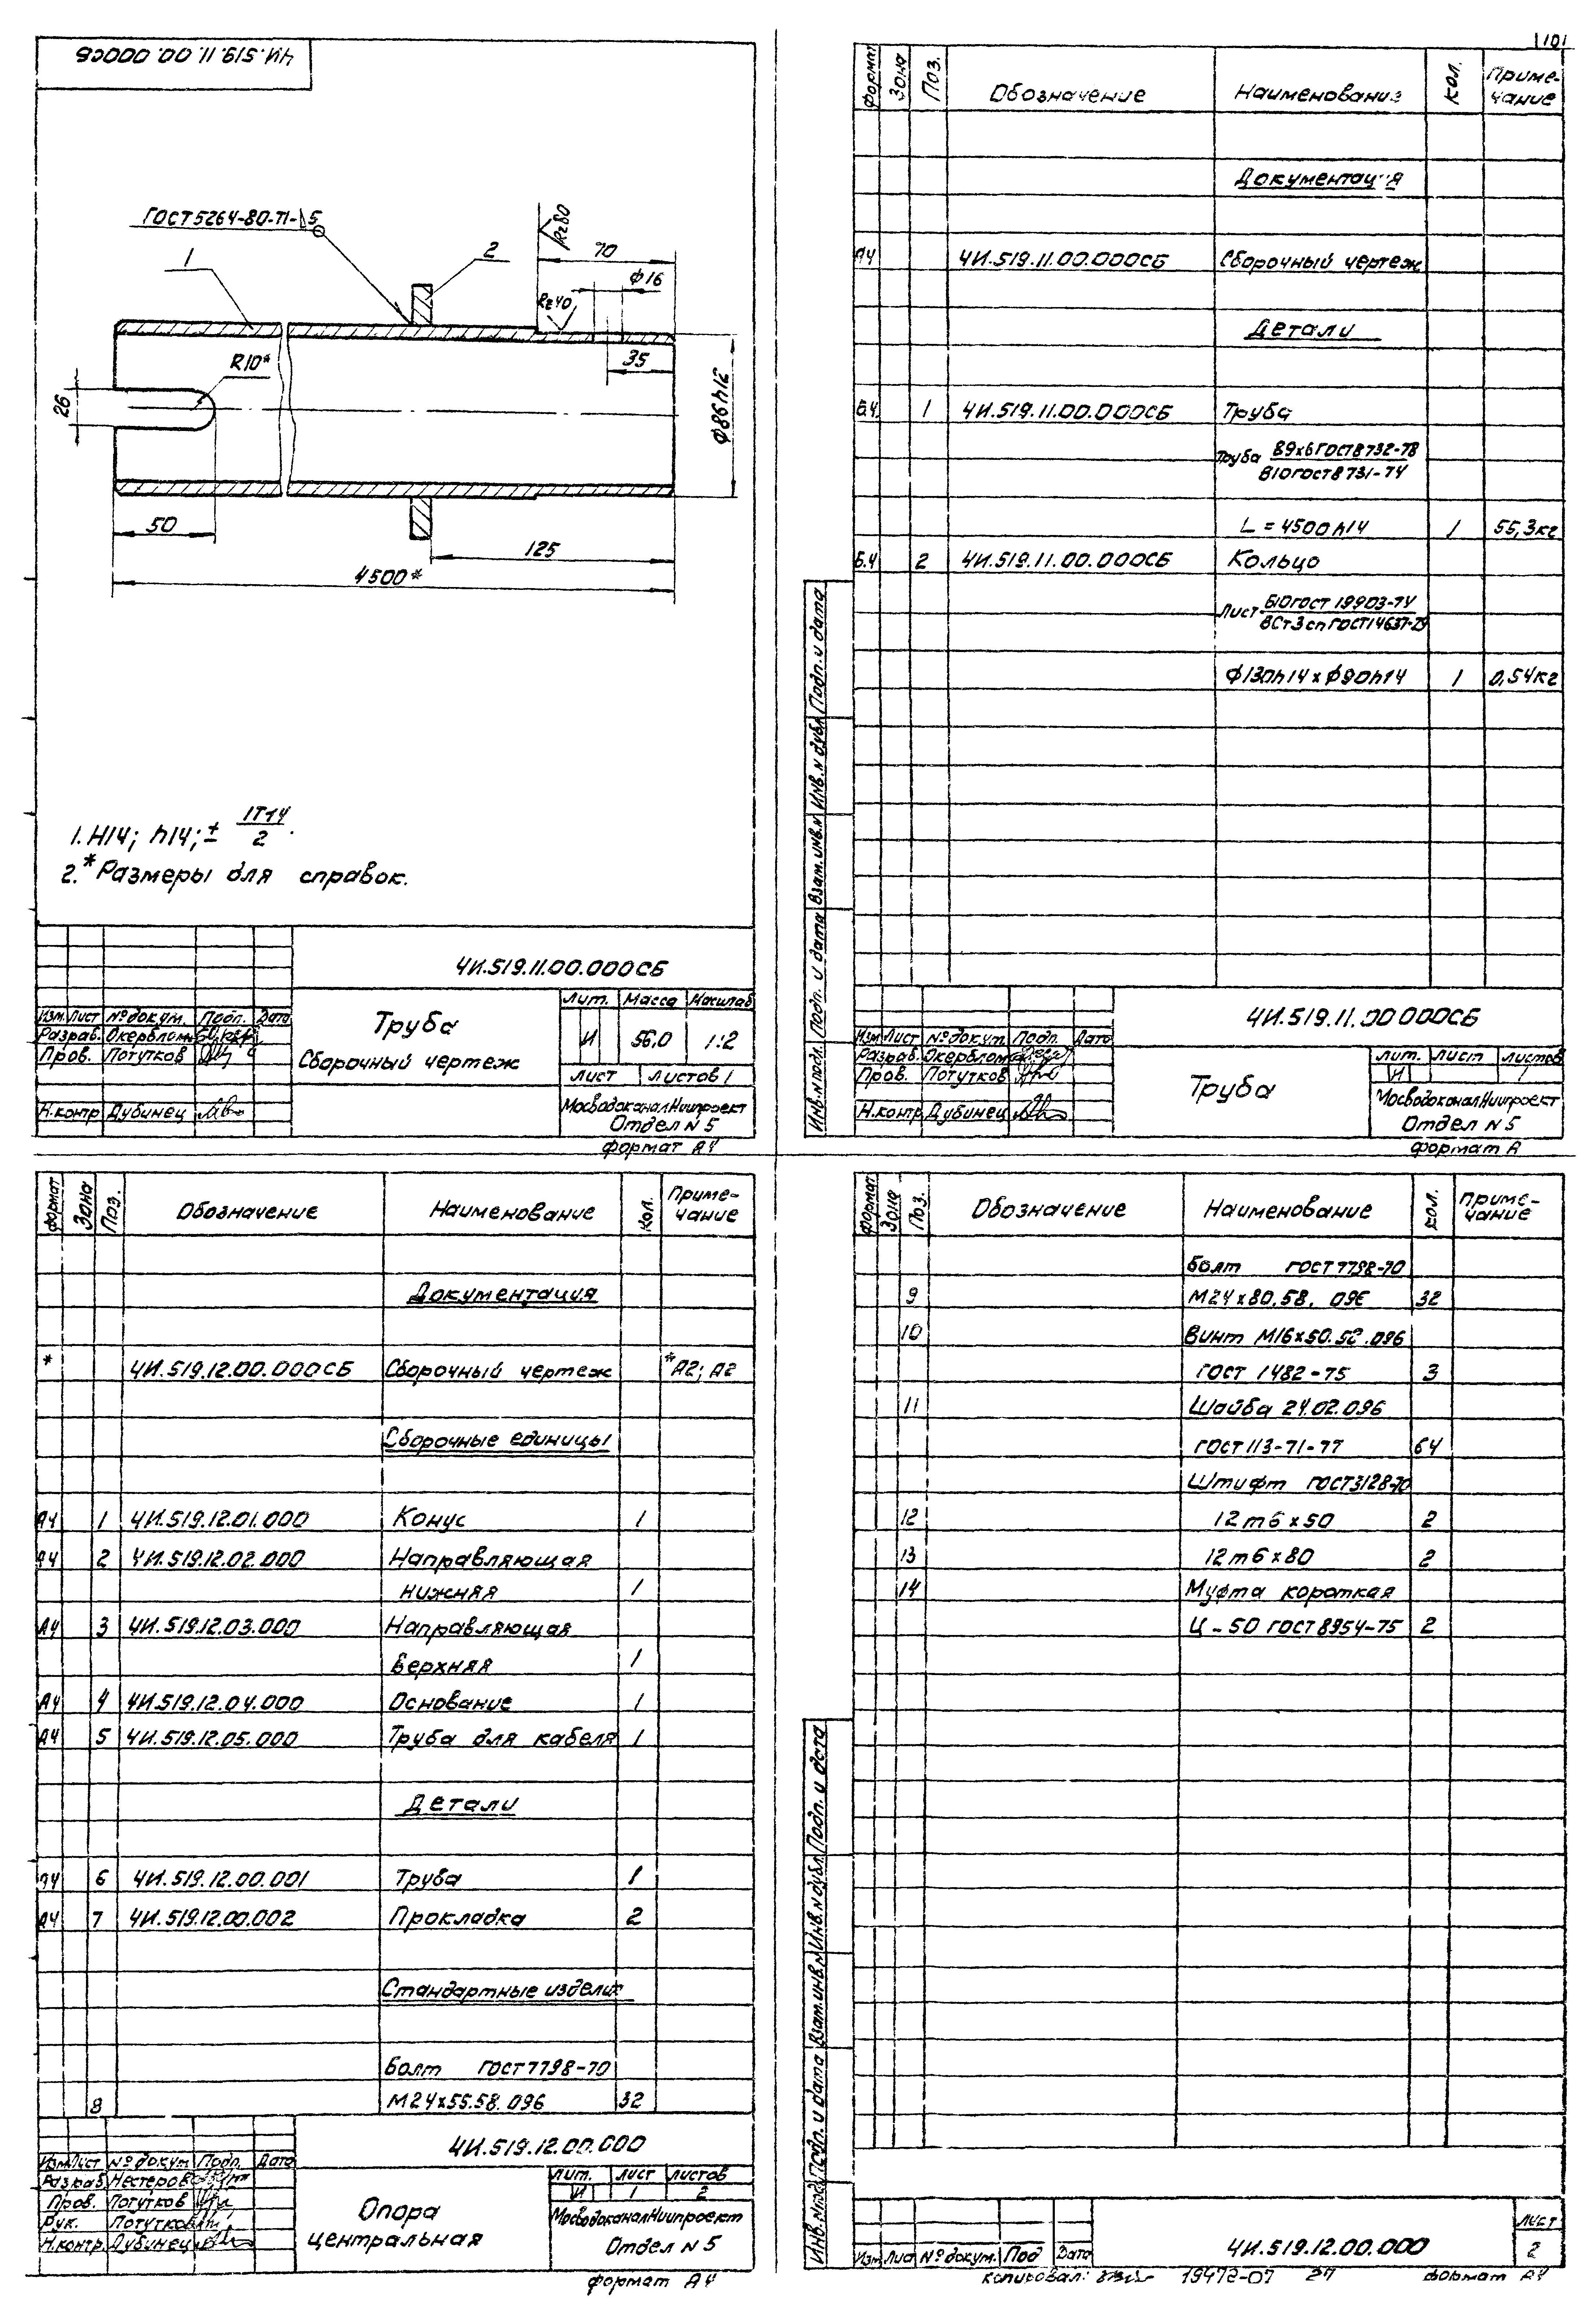 4И.519.11.00.000СБ
ГОСТ5264-80-Т1-5
1
2
Rz80
70
Ф16
Rz40
35
R10*
26
Ф86h12
50
125
4500*
1. H14; h14; ± IT14/2.
2.* Размеры для справок.
4И.519.11.00.000СБ
Изм. Лист № докум. Подп. Дата
Разраб. Окерблом
Пров. Потутков
Н.контр Дубинец
Труба
Сборочный чертеж
Лит. Масса Масштаб
И 56,0 1:2
Лист Листов 1
МосводоканалНиипроект
Отдел N 5
формат А4
101
формат Зона Поз. Обозначение Наименование Кол. Приме-
чание
Документация
А4 4И.519.11.00.000СБ Сборочный чертеж
Детали
Б.4. 1 4И.519.11.00.000СБ Труба
Труба 89х6ГОСТ8732-78
В10ГОСТ8731-74
L = 4500h14 1 55,3кг
Б.4 2 4И.519.11.00.000СБ Кольцо
Лист Б10ГОСТ 19903-74
ВСт3спГОСТ14637-79
Ф130h14 х Ф90h14 1 0,54кг
Инв.N подл. Подп. и дата Взам.инв.N Инв.N дубл. Подп. и дата
4И.519.11.00.000СБ
Изм Лист № докум. Подп. Дата
Разраб. Окерблом
Пров. Потутков
Н.контр Дубинец
Труба
Лит. Лист Листов
И 1
МосводоканалНиипроект
Отдел N 5
формат А
формат Зона Поз. Обозначение Наименование Кол. Приме-
чание
Документация
* 4И.519.12.00.000СБ Сборочный чертеж *А2; А2
Сборочные единицы
А4 1 4И.519.12.01.000 Конус 1
А4 2 4И.519.12.02.000 Направляющая
нижняя 1
А4 3 4И.519.12.03.000 Направляющая
верхняя 1
А4 4 4И.519.12.04.000 Основание 1
А4 5 4И.519.12.05.000 Труба для кабеля 1
Детали
А4 6 4И.519.12.00.001 Труба 1
А4 7 4И.519.12.00.002 Прокладка 2
Стандартные изделия
Болт ГОСТ7798-70
8 М24х55.58.096 32
4И.519.12.00.000
Изм Лист № докум Подп. Дата
Разраб Нестеров
Пров. Потутков
Рук. Потутков
Н.контр. Дубинец
Опора
центральная
Лит. Лист Листов
И 1 2
МосводоканалНиипроект
Отдел N 5
формат А4
формат Зона Поз. Обозначение Наименование Кол. Приме-
чание
Болт ГОСТ7798-70
9 М24х80.58. 096 32
10 Винт М16х50.52.096
ГОСТ 1482-75 3
11 Шайба 24.02.096
ГОСТ113-71-77 64
Штифт ГОСТ3128-70
12 12m6х50 2
13 12m6х80 2
14 Муфта короткая
Ц-50 ГОСТ8954-75 2
Инв.N подл Подп. и дата Взам.инв.N Инв.N дубл. Подп. и дата
Изм Лис № докум. Под Дата
4И.519.12.00.000
Лист
2
копировал: 19472-07 27 формат А4